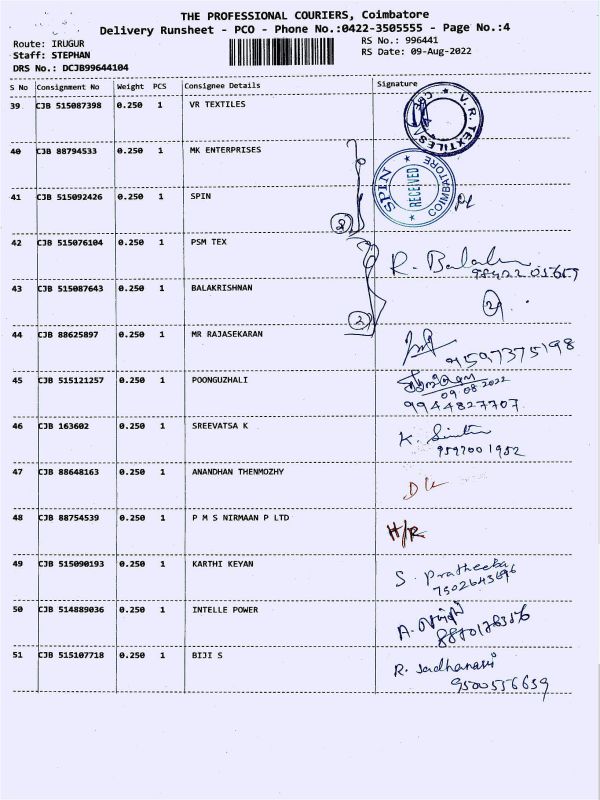 THE PROFESSIONAL COURIERS, Coimbatore
Delivery Runsheet - PCO - Phone No.:0422-3505555 - Page No.:4
Route: IRUGUR
RS No.: 996441
Staff: STEPHAN
RS Date: 09-Aug-2022
DRS No.: DCJB99644104
S No Consignment No Weight PCS Consignee Details Signature
39 CJB 515087398 0.250 1 VR TEXTILES V.R. TEXTILES CBE
40 CJB 88794533 0.250 1 MK ENTERPRISES
41 CJB 515092426 0.250 1 SPIN SPIN RECEIVED COIMBATORE
42 CJB 515076104 0.250 1 PSM TEX R.
43 CJB 515087643 0.250 1 BALAKRISHNAN
44 CJB 88625897 0.250 1 MR RAJASEKARAN 9597375198
45 CJB 515121257 0.250 1 POONGUZHALI
09.08.2022
9944827707
46 CJB 163602 0.250 1 SREEVATSA K K.
47 CJB 88648163 0.250 1 ANANDHAN THENMOZHY
48 CJB 88754539 0.250 1 P M S NIRMAAN P LTD H/R
49 CJB 515090193 0.250 1 KARTHI KEYAN S. Pratheeba
50 CJB 514889036 0.250 1 INTELLE POWER A.
51 CJB 515107718 0.250 1 BIJI S R.
9500556659